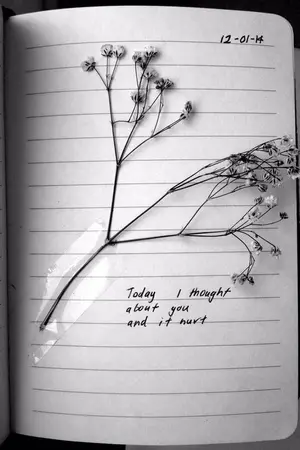 12-01-14
Today I thought
about you
and it hurt